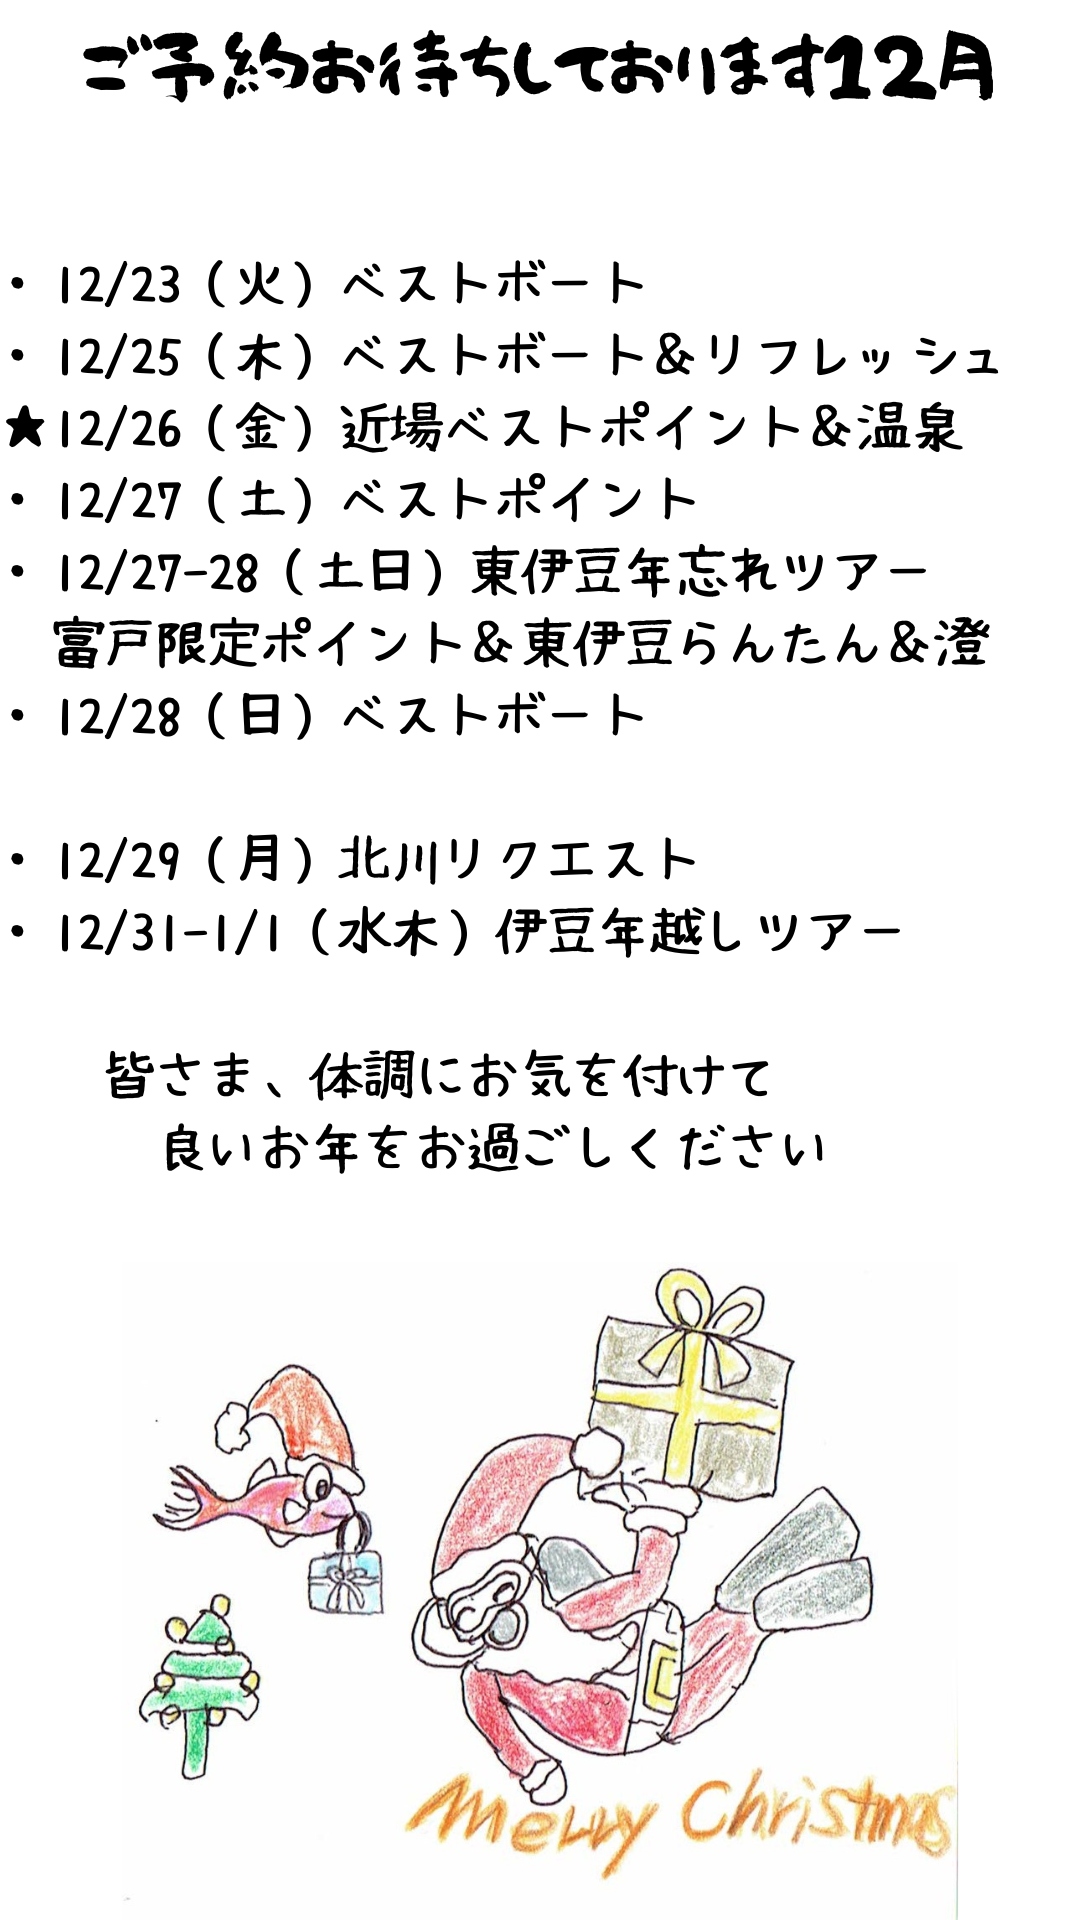 ご予約お待ちしております12月
・12/23（火）ベストボート
・12/25（木）ベストボート＆リフレッシュ
★12/26（金）近場ベストポイント＆温泉
・12/27（土）ベストポイント
・12/27-28（土日）東伊豆年忘れツアー
富戸限定ポイント＆東伊豆らんたん＆澄
・12/28（日）ベストボート
・12/29（月）北川リクエスト
・12/31-1/1（水木）伊豆年越しツアー
皆さま、体調にお気を付けて
良いお年をお過ごしください
Merry Christmas